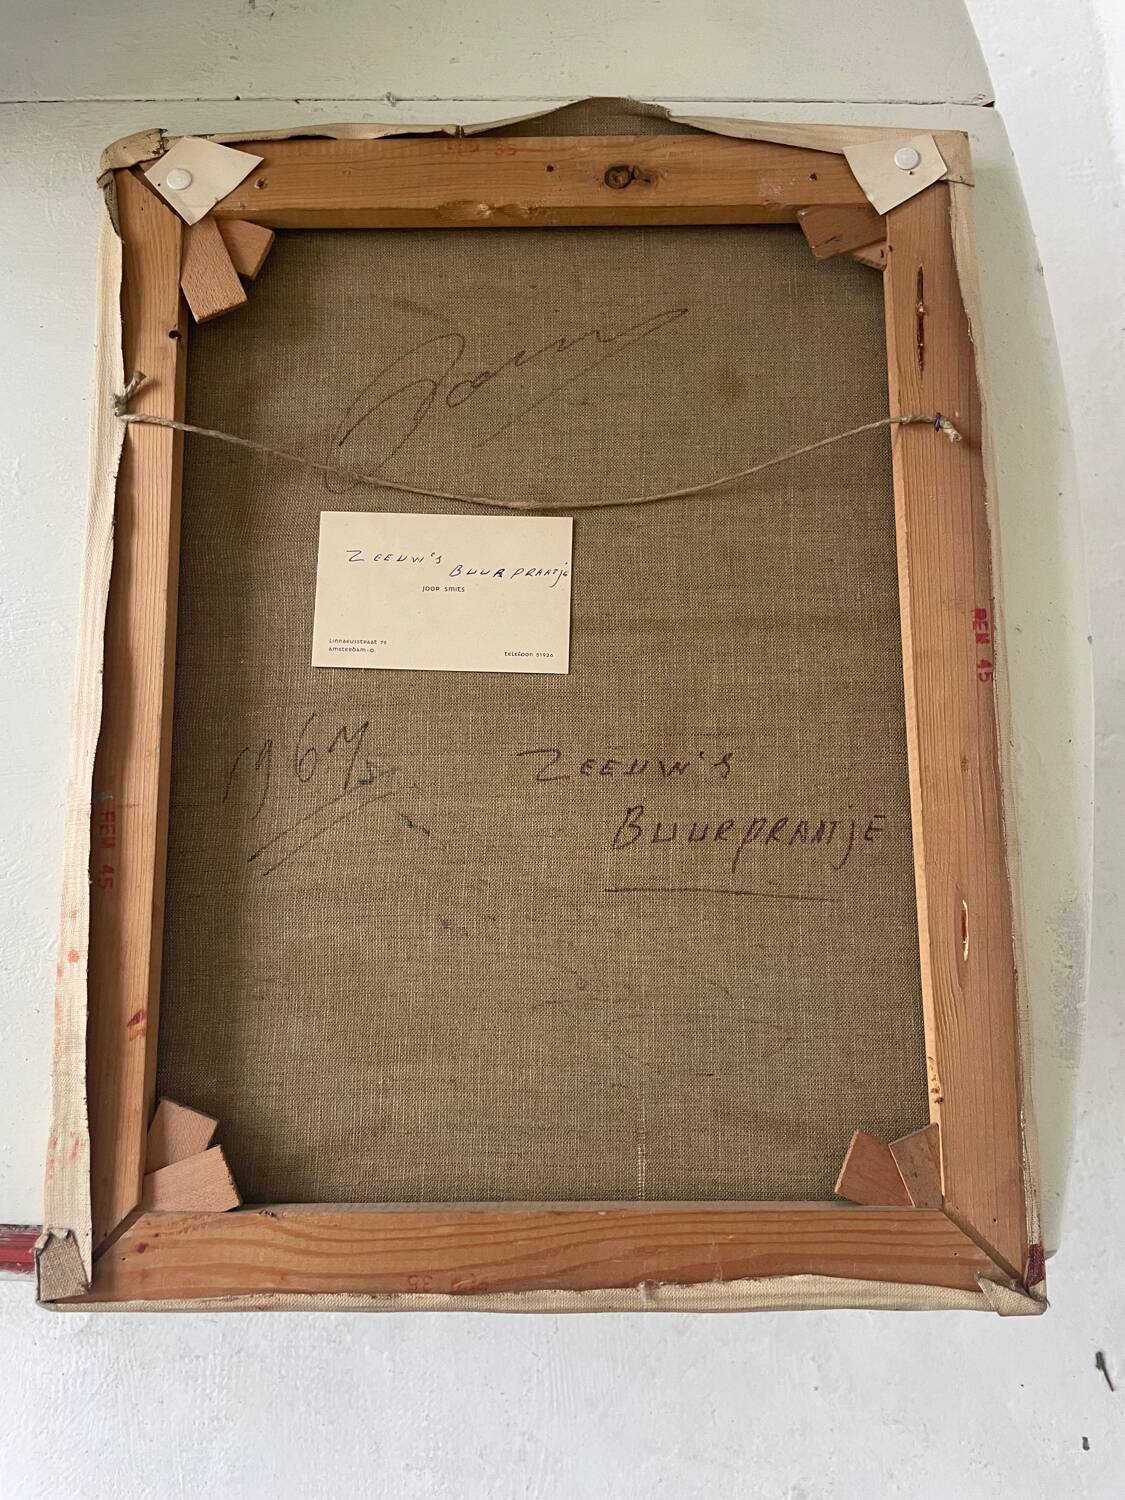 REN 35
ZEEUW'S
BUURPRAATJE
JOOP SMITS
LINNAEUSSTRAAT 79
AMSTERDAM-O.
TELEFOON 51926
REN 45
ZEEUW'S
BUURPRAATJE
REN 45
45
REN 35